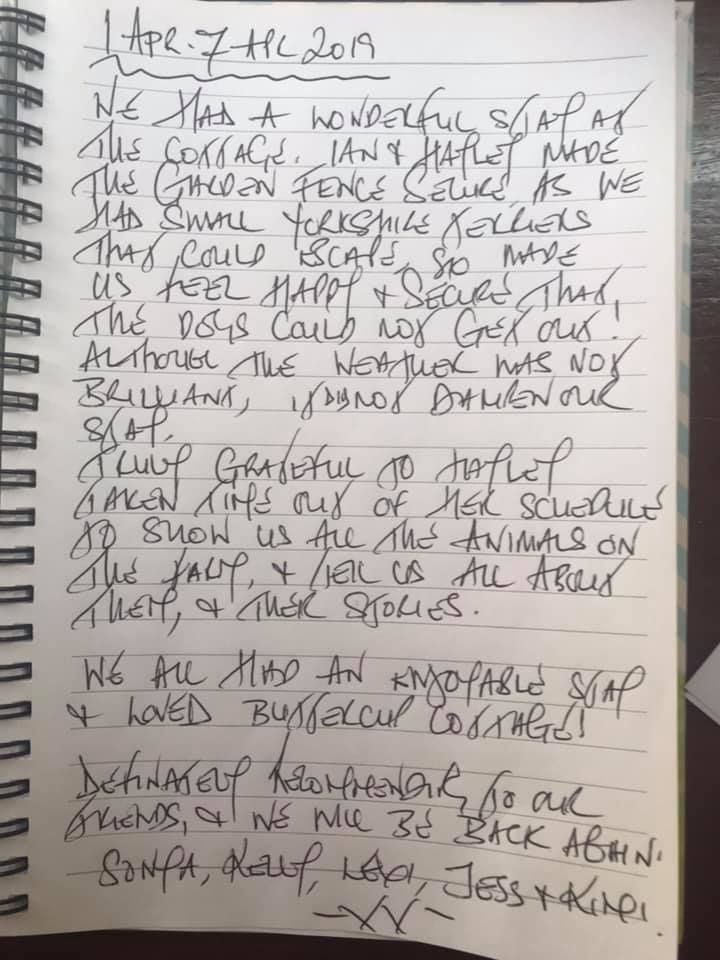 1 APR - 7 APR 2019
WE HAD A WONDERFUL STAY AT
THE COTTAGE. IAN & HAYLEY MADE
THE GARDEN FENCE SECURE, AS WE
HAD SMALL YORKSHIRE TERRIERS
THAT COULD ESCAPE, SO MADE
US FEEL HAPPY & SECURE THAT,
THE DOGS COULD NOT GET OUT!
ALTHOUGH THE WEATHER WAS NOT
BRILLIANT, IT DID NOT DAMPEN OUR
STAY.
TRULY GRATEFUL TO HAYLEY
TAKEN TIME OUT OF HER SCHEDULE
TO SHOW US ALL THE ANIMALS ON
THE FARM, & TELL US ALL ABOUT
THEM, & THEIR STORIES.
WE ALL HAD AN ENJOYABLE STAY
& LOVED BUTTERCUP COTTAGE!
DEFINATELY RECOMMENDING TO OUR
FRIENDS, & WE WILL BE BACK AGAIN.
SONYA, KELLY, LEXI, JESS &
-XX-